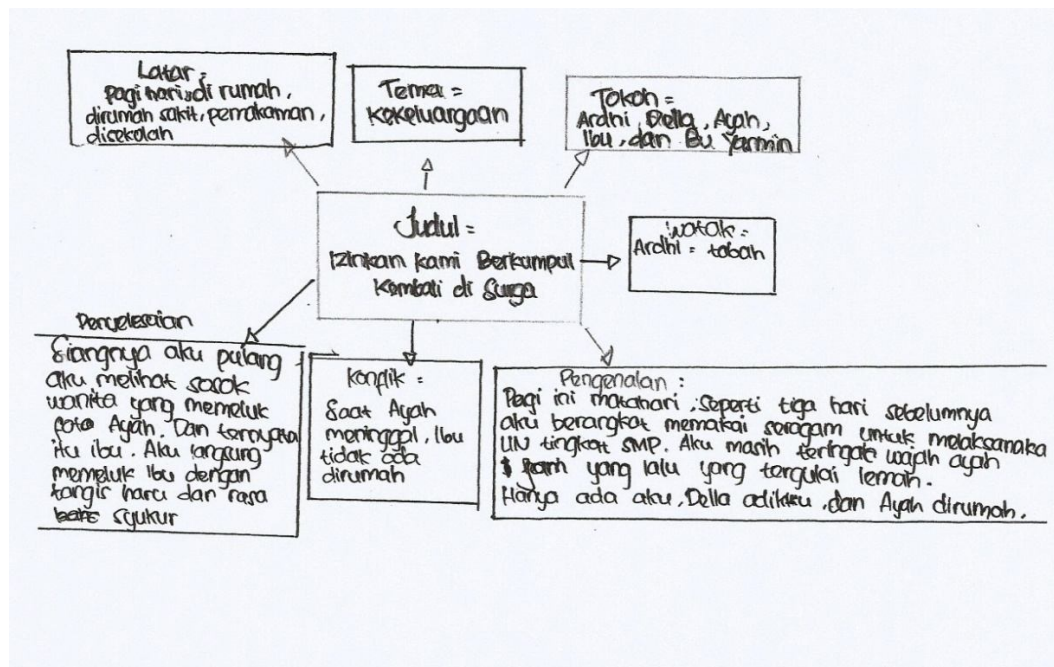 Latar =
Pagi hari, di rumah,
dirumah sakit, pemakaman,
disekolah
Tema =
Kekeluargaan
Tokoh =
Ardhi, Della, Ayah,
Ibu, dan Bu Yarmin
Judul =
Izinkan Kami Berkumpul
Kembali di Surga
Watak =
Ardhi = tabah
Penyelesaian
Siangnya aku pulang
aku melihat sosok
wanita yang memeluk
foto Ayah. Dan ternyata
itu ibu. Aku langsung
memeluk Ibu dengan
tangis haru dan rasa
syukur
Konflik :
Saat Ayah
meninggal, Ibu
tidak ada
dirumah
Pengenalan :
Pagi ini matahari, seperti tiga hari sebelumnya
aku berangkat memakai seragam untuk melaksanaka
UN tingkat SMP. Aku masih teringat wajah ayah
yang lalu yang tergulai lemah.
Hanya ada aku, Della adikku, dan Ayah dirumah.